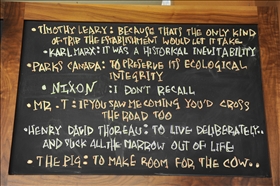 • TIMOTHY LEARY: BECAUSE THATS THE ONLY KIND
OF TRIP THE ETABLISHMENT WOULD LET IT TAKE
• KARL MARX: IT WAS A HISTORICAL INEVITABILITY
• PARKS CANADA: TO PRESERVE ITS ECOLOGICAL
INTEGRITY
• NIXON : I DON'T RECALL
• MR. T: IF YOU SAW ME COMING YOU'D CROSS
THE ROAD TOO
• HENRY DAVID THOREAU: TO LIVE DELIBERATELY..
AND SUCK ALL THE MARROW OUT OF LIFE
• THE PIG: TO MAKE ROOM FOR THE COW..